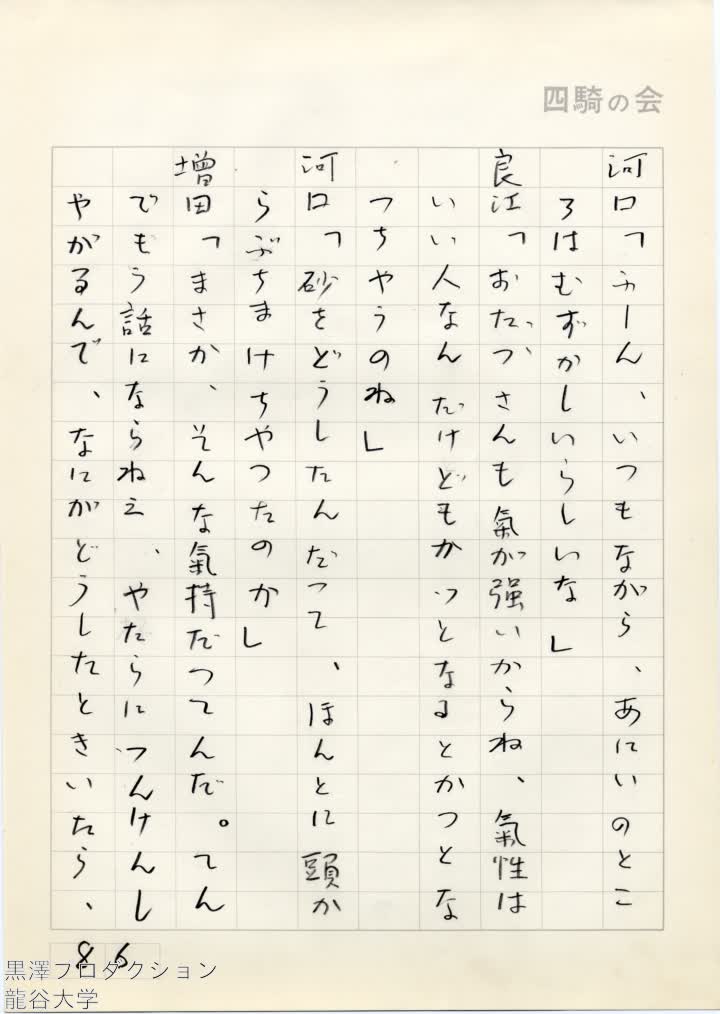 四騎の会
河口「ふーん、いつもながら、あにいのとこ
ろはむずかしいらしいな」
良江「おたつさんも氣が強いからね、氣性は
いい人なんだけどもかっとなるとかつとな
つちやうのね」
河口「砂をどうしたんだって、ほんとに頭か
らぶちまけちやつたのか」
増田「まさか、そんな氣持だつてんだ。てん
でもう話にならねえ、やたらにつんけんし
やがるんで、なにがどうしたときいたら、
86
黒澤プロダクション
龍谷大学